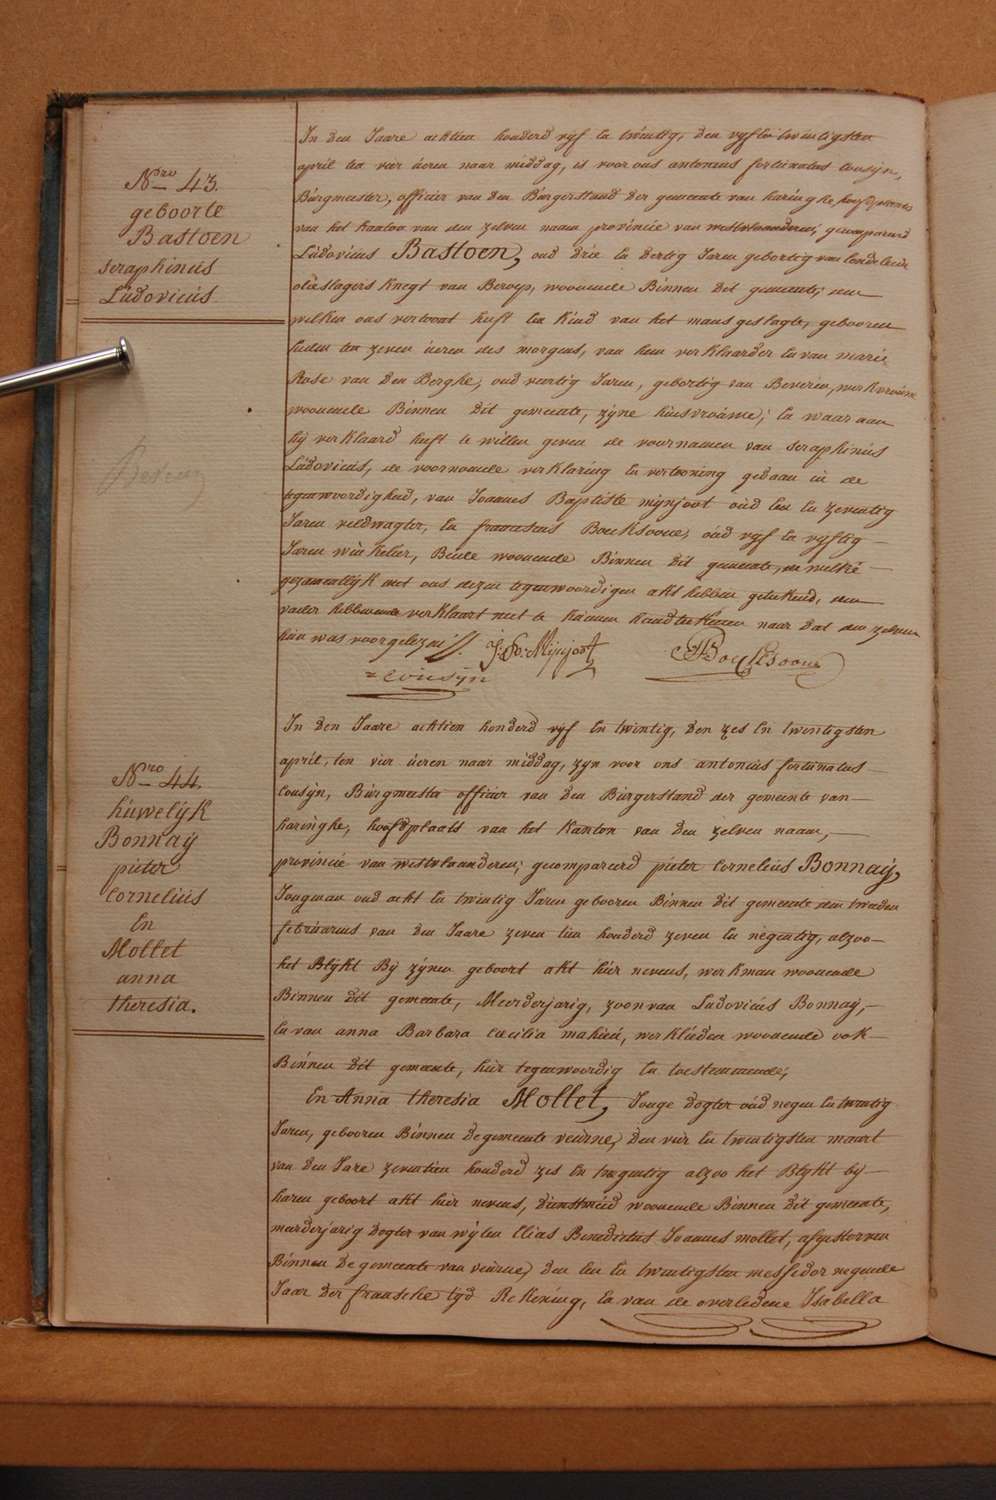 Nro 43.
geboorte
Bastoen
seraphinús
Lúdovicús.
In den Jaare achtien honderd vyf En twintig, den vyf En twintigsten
april ten vier úeren naar middag, is voor ons antonius fortúnatus Cousyn,
Búrgmeester, officier van den Búrgerstand der gemeente van haringhe, hoofdplaats
van het kanton van den zelven naam provincie van westvlaanderen; gecompareerd
Lúdovicús Bastoen, oud drie En dertig Jaren gebortig van
olieslagers knegt van Beroep, woonende Binnen Dit gemeente; den
welken ons vertoont heeft Een Kind van het mans geslagte, gebooren
heden ten zeven úeren des morgens, van hem verklaarder En van marie
Rose van den Berghe, oud veertig Jaren, gebortig van Beveren, werkvroúw
woonende Binnen Dit gemeente, zyne húisvroúwe; En waar aan
hij verklaard heeft te willen geven de voornamen van seraphinús
Lúdovicús, de voornoemde verklaring En vertooning gedaan in de
tegenwoordigheid, van Joannes Baptiste mijnjoot oúd Een En zeventig
Jaren veldwagter, En franciscus Boucksoone, oúd vyf En vyftig
Jaren winkelier, Beide woonende Binnen Dit gemeente, de welke
gezamentlyk met ons dezen tegenwoordigen akt hebben geteekend, den
vader hebbende verklaart niet te kúnnen handteekenen naar dat den zelven
hún was voorgelezen.
J: B: Mijnjoot
Boucksoone
= Cousyn
Nro 44.
húwelijk
Bonnaij
pieter
Cornelius
En
Mollet
anna
theresia.
In den Jaare achtien honderd vyf En twintig, den zes En twintigsten
april, ten vier úeren naar middag, zyn voor ons antoniús fortúnatus
Cousyn, Búrgmeester officier van den Búrgerstand der gemeente van
haringhe, hoofdplaats van het Kanton van den zelven naam,
provincie van westvlaanderen; gecompareerd pieter Cornelius Bonnaij,
Jongman oud acht En twintig Jaren gebooren Binnen Dit gemeente den tweeden
februarius van den Jaare zeven tien honderd zeven En negentig, alzoo
het Blykt By zynen geboort akt hier nevens, werkman woonende
Binnen Dit gemeente, Meerderjarig, zoon van Ludoviciús Bonnaij,
En van anna Barbara Cæcilia mahieú, werklieden woonende ook
Binnen Dit gemeente, hier tegenwoordig En toestemmende;
En Anna theresia Mollet, Jonge dogter oúd negen En twintig
Jaren, gebooren Binnen De gemeente veurne, den vier En twintigsten maart
van den Jare zeventien honderd zes En negentig alzoo het Blykt by
haren geboort akt hier nevens, dienstmeid woonende Binnen Dit gemeente,
meerderjarig Dogter van wijlen Elias Benedictus Joannes mollet, afgestorven
Binnen De gemeente van veúrne, den Een En twintigsten messidor negende
Jaar Der fransche tijd Rekening, En van de overledene Isabella